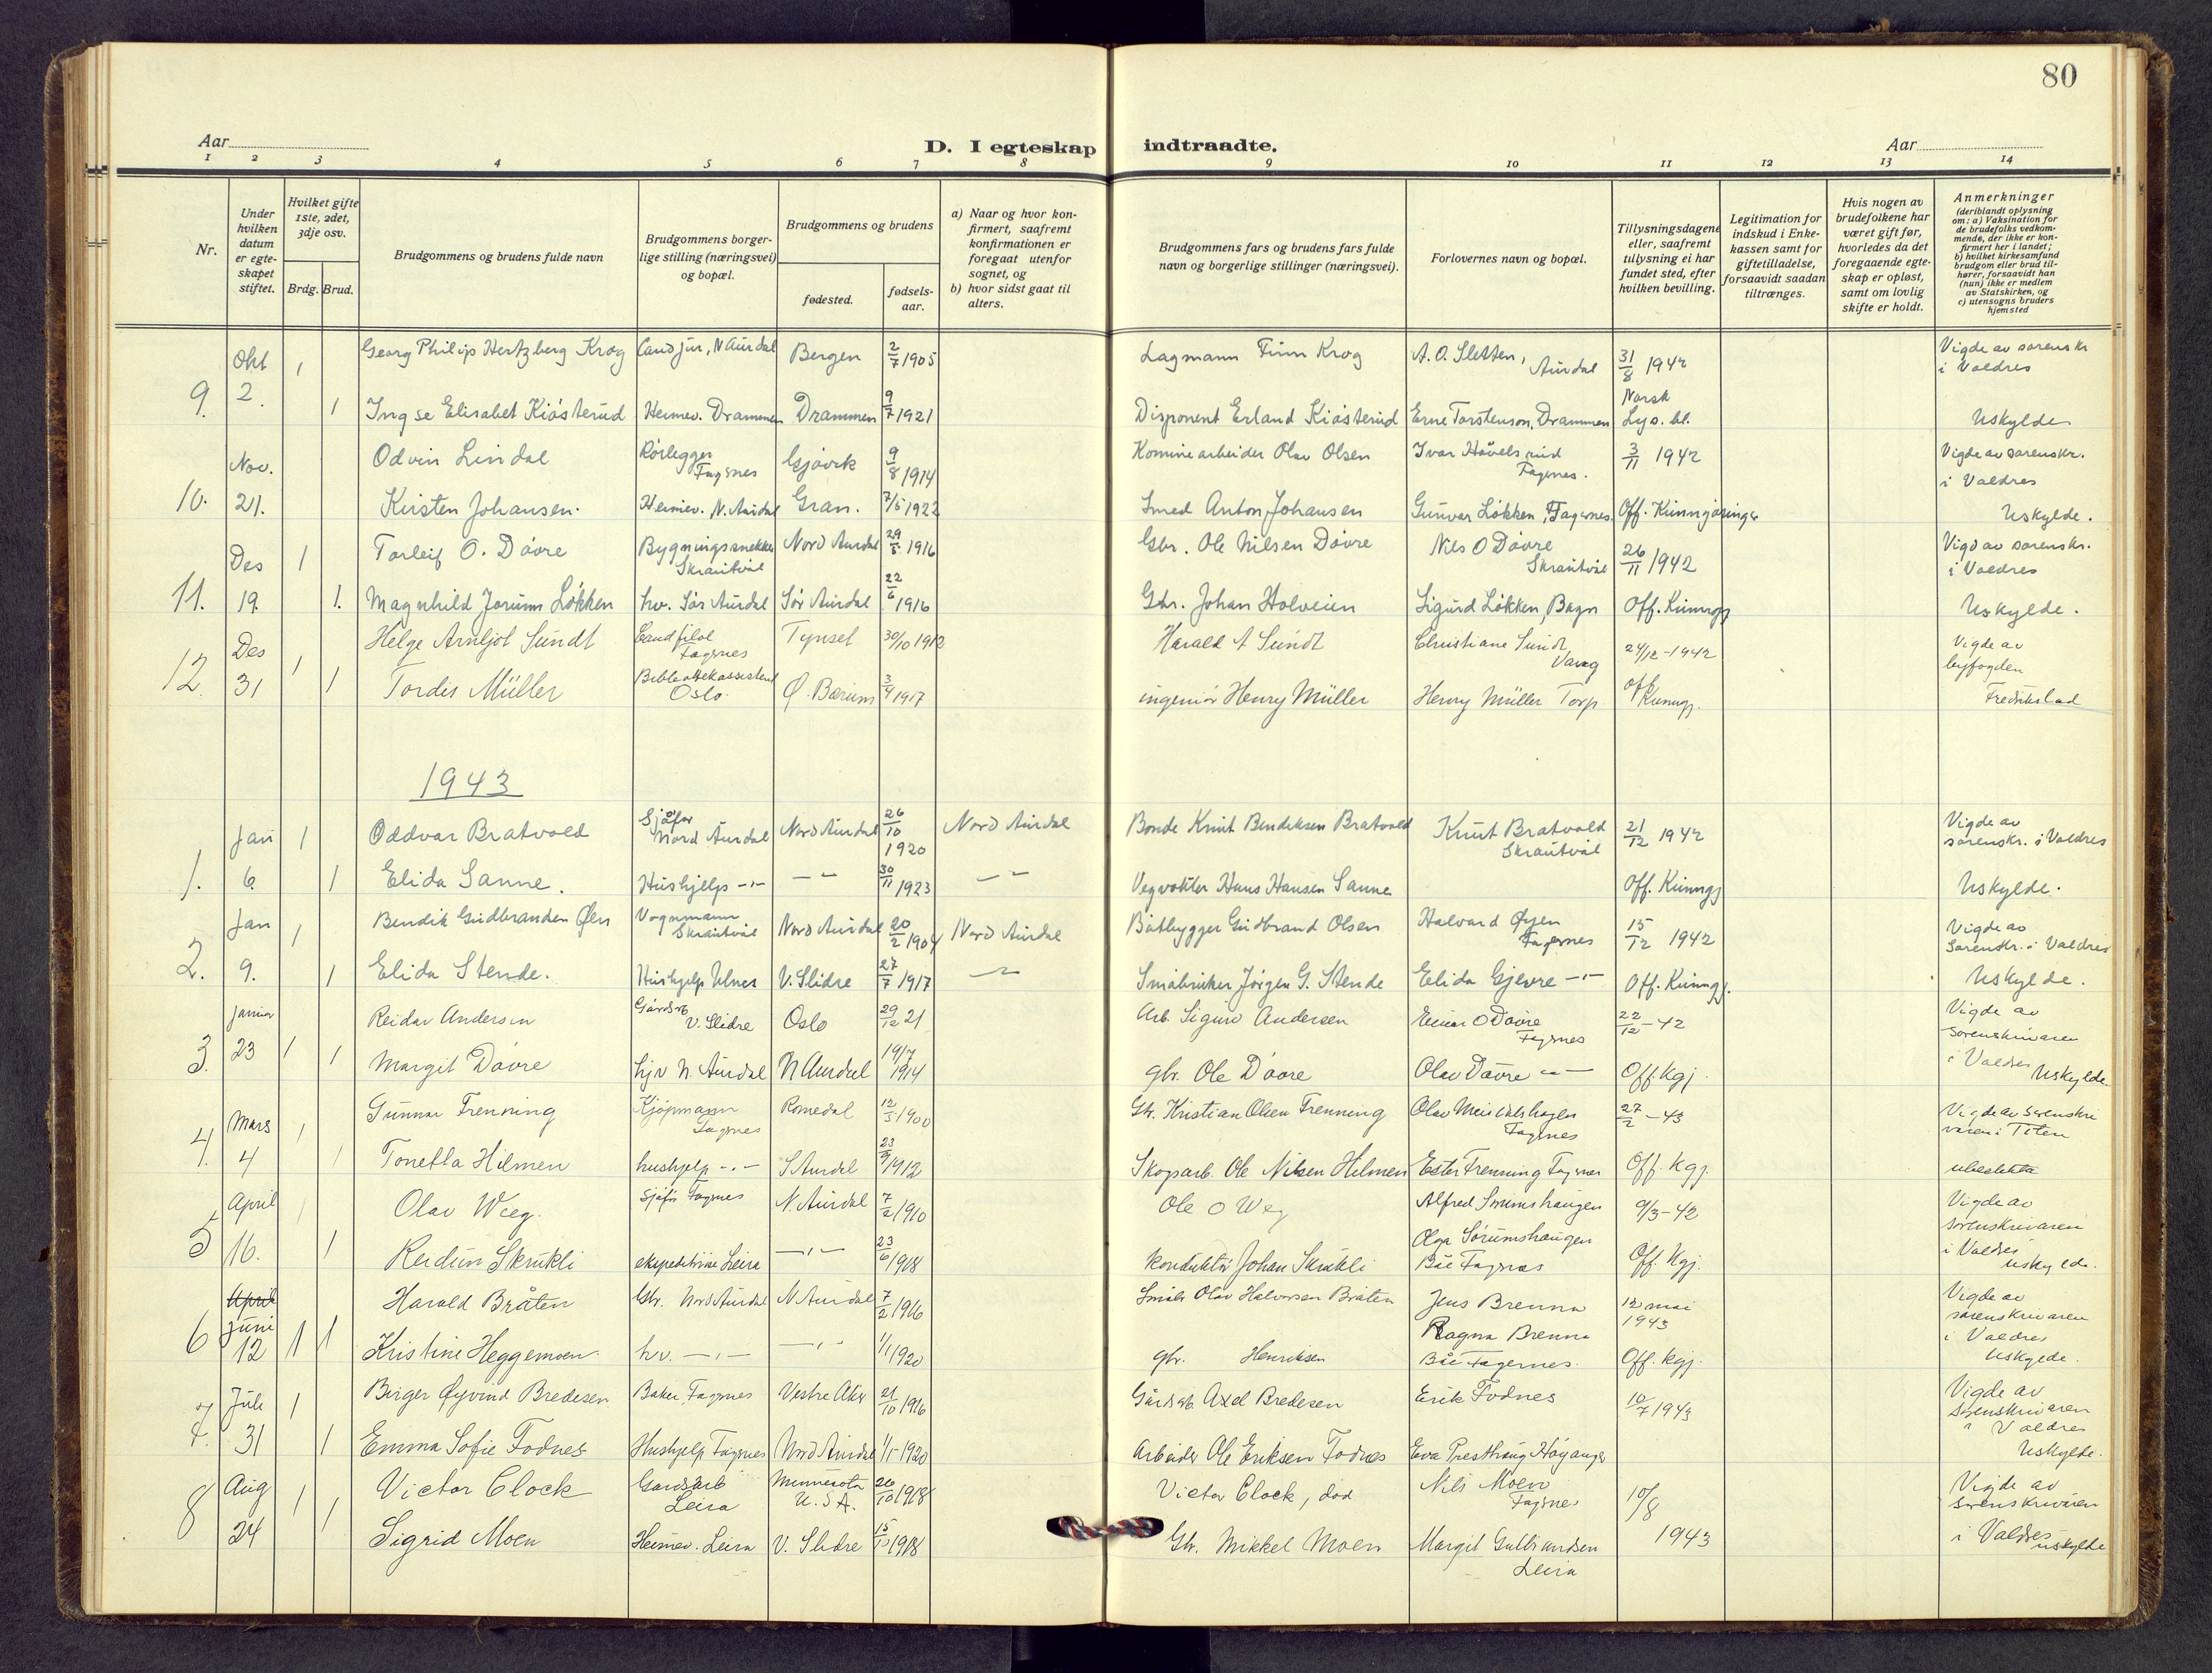 80
Aar
D. I egteskap indtraadte.
Aar
1 2 3 4 5 6 7 8 9 10 11 12 13 14
Nr.
Under hvilken datum er egteskapet stiftet.
Hvilket gifte 1ste, 2det, 3dje osv.
Brdg. Brud.
Brudgommens og brudens fulde navn
Brudgommens borgerlige stilling (næringsvei) og bopæl.
Brudgommens og brudens
fødested.
fødselsaar.
a) Naar og hvor konfirmert, saafremt konfirmationen er foregaat utenfor sognet, og
b) hvor sidst gaat til alters.
Brudgommens fars og brudens fars fulde navn og borgerlige stillinger (næringsvei).
Forlovernes navn og bopæl.
Tillysningsdagene eller, saafremt tillysning ei har fundet sted, efter hvilken bevilling.
Legitimation for indskud i Enkekassen samt for giftetilladelse, forsaavidt saadan tiltrænges.
Hvis nogen av brudefolkene har været gift før, hvorledes da det foregaaende egteskap er opløst, samt om lovlig skifte er holdt.
Anmerkninger
(deriblandt oplysning om: a) Vaksination for de brudefolks vedkommende, der ikke er konfirmert her i landet; b) hvilket kirkesamfund brudgom eller brud tilhører, forsaavidt han (hun) ikke er medlem av Statskirken, og c) utensogns bruders hjemsted
Okt 1 Georg Philip Hertzberg Krog Cand jur, N Aurdal Bergen 2/7 1905 Lagmann Finn Krog A. O. Sletten, Aurdal 31/8 1942 Vigde av sorenskr i Valdres
9. 2. 1 Elisabet Kiøsterud Heimev. Drammen Drammen 9/7 1921 Disponent Erland Kiøsterud Erne Torstenson, Drammen Norsk Lys. bl. Uskylde
Nov. Odvin Lindal Rørlegger Fagernes Gjøvik 9/8 1914 Olav Olsen Ivar Fagernes. 3/11 1942 Vigde av sorenskr. i Valdres
10. 21. Kirsten Johansen. Heimev. N. Aurdal Gran. 7/5 1922 Smed Anton Johansen Gunvor Løkken, Fagernes Off. Kunngjøringer Uskylde.
Des 1 Torleif O. Døvre Bygningssnekker Skrautvål Nord Aurdal 29/5 1916 Gbr. Ole Nilsen Døvre Nils O Døvre Skrautvål 26/11 1942 Vigd av sorenskr. i Valdres
11. 19. 1. Magnhild Jorunn Løkken hv. Sør Aurdal Sør Aurdal 22/6 1916 Gbr. Johan Holveien Sigurd Løkken, Bagn Off. Kunngj Uskylde.
Des 1 Helge Arnljot Sundt Cand filol Fagernes Tynset 30/10 1912 Harald A Sundt Christiane Sundt 24/12-1942 Vigde av byfogden
12. 31 1 Tordis Müller Bibliotekassistent Oslo Ø. Bærum 3/4 1917 ingeniør Henry Müller Henry Müller Torp off Kunngj. Fredrikstad
1943
Jan 1 Oddvar Bratvold Sjåfør Nord Aurdal Nord Aurdal 26/10 1920 Nord Aurdal Bonde Knut Bendiksen Bratvold Knut Bratvold Skrautvål 21/12 1942 Vigde av sorenskr. i Valdres
1. 6. 1 Elida Sanne. Hushjelp -"- -"- 30/11 1923 -"- Vegvokter Hans Hansen Sanne Off. Kunngj Uskylde.
Jan 1 Bendik Gudbrandsen Øen Vognmann Skrautvål Nord Aurdal 20/2 1904 Nord Aurdal Båtbygger Gudbrand Olsen Halvard Øyen Fagernes 15/12 1942 Vigde av Sorenskr. i Valdres
2. 9. 1 Elida Stende. Hushjelp Ulnes V. Slidre 27/7 1917 -"- Småbruker Jørgen G. Stende Elida Gjevre -"- Off. Kunngj. Uskylde.
Januar Reidar Andersen Gårdsarb V. Slidre Oslo 29/12 21 Arb. Sigurd Andersen Einar O Døvre Fagernes 22/12-42 Vigde av Sorenskrivaren
3. 23 1 1 Margit Døvre hjv N. Aurdal N Aurdal 19/7 1914 gbr. Ole Døvre Olav Døvre -"- Off. Kgj. i Valdres Uskylde.
Mars 1 Gunnar Frenning Kjøpmann Fagernes Romedal 12/3 1900 Gbr. Kristian Olsen Frenning Olav Fagernes 27/2-43 Vigde av Sorenskrivaren i Toten
4. 4 1 Tonetta Hilmen hushjelp -"- S Aurdal 23/9 1912 Skogsarb. Ole Nilsen Hilmen Ester Frenning Fagernes Off. Kgj.
April 1 Olav Weg. Sjåfør Fagernes N. Aurdal 7/2 1910 Ole O Weg Alfred Sørumshaugen 9/3-42 Vigde av sorenskrivaren
5 16. 1 Reidun Skrukli ekspeditrise Leira -"- 23/6 1918 konduktør Johan Skrukli Olga Sørumshaugen Båe Fagernes Off. Kgj. i Valdres uskylde.
April
Juni Harald Bråten Gbr. Nord Aurdal N Aurdal 7/2 1916 Småbr Olav Halvorsen Bråten Jens Brenna 12 mai 1943 Vigde av sorenskrivaren i Valdres
6 12 1 1 Kristine Heggemoen hv. -"- -"- 1/1 1920 gbr. Henriksen Ragna Brenna Båe Fagernes. Off. kgj. Uskylde.
Juli 1 Birger Øyvind Bredesen Baker Fagernes Vestre Aker 21/10 1916 Gårdsarb. Axel Bredesen Erik Fodnes 10/7 1943 Vigde av sorenskrivaren i Valdres
7. 31 1 Emma Sofie Fodnes Hushjelp Fagernes Nord Aurdal 1/5 1920 Arbeider Ole Eriksen Fodnes Eva Presthaug Høyanger Uskylde.
Aug 1 Victor Clock Gardsarb Leira Minnesota U.S.A. 26/10 1918 Victor Clock, død Nils Moen Fagernes 10/8 Vigde av sorenskrivaren
8 24 1 Sigrid Moen Heimev. Leira V. Slidre 1918 Gbr. Mikkel Moen Margit Gulbrandsen Leira 1943 i Valdres uskylde